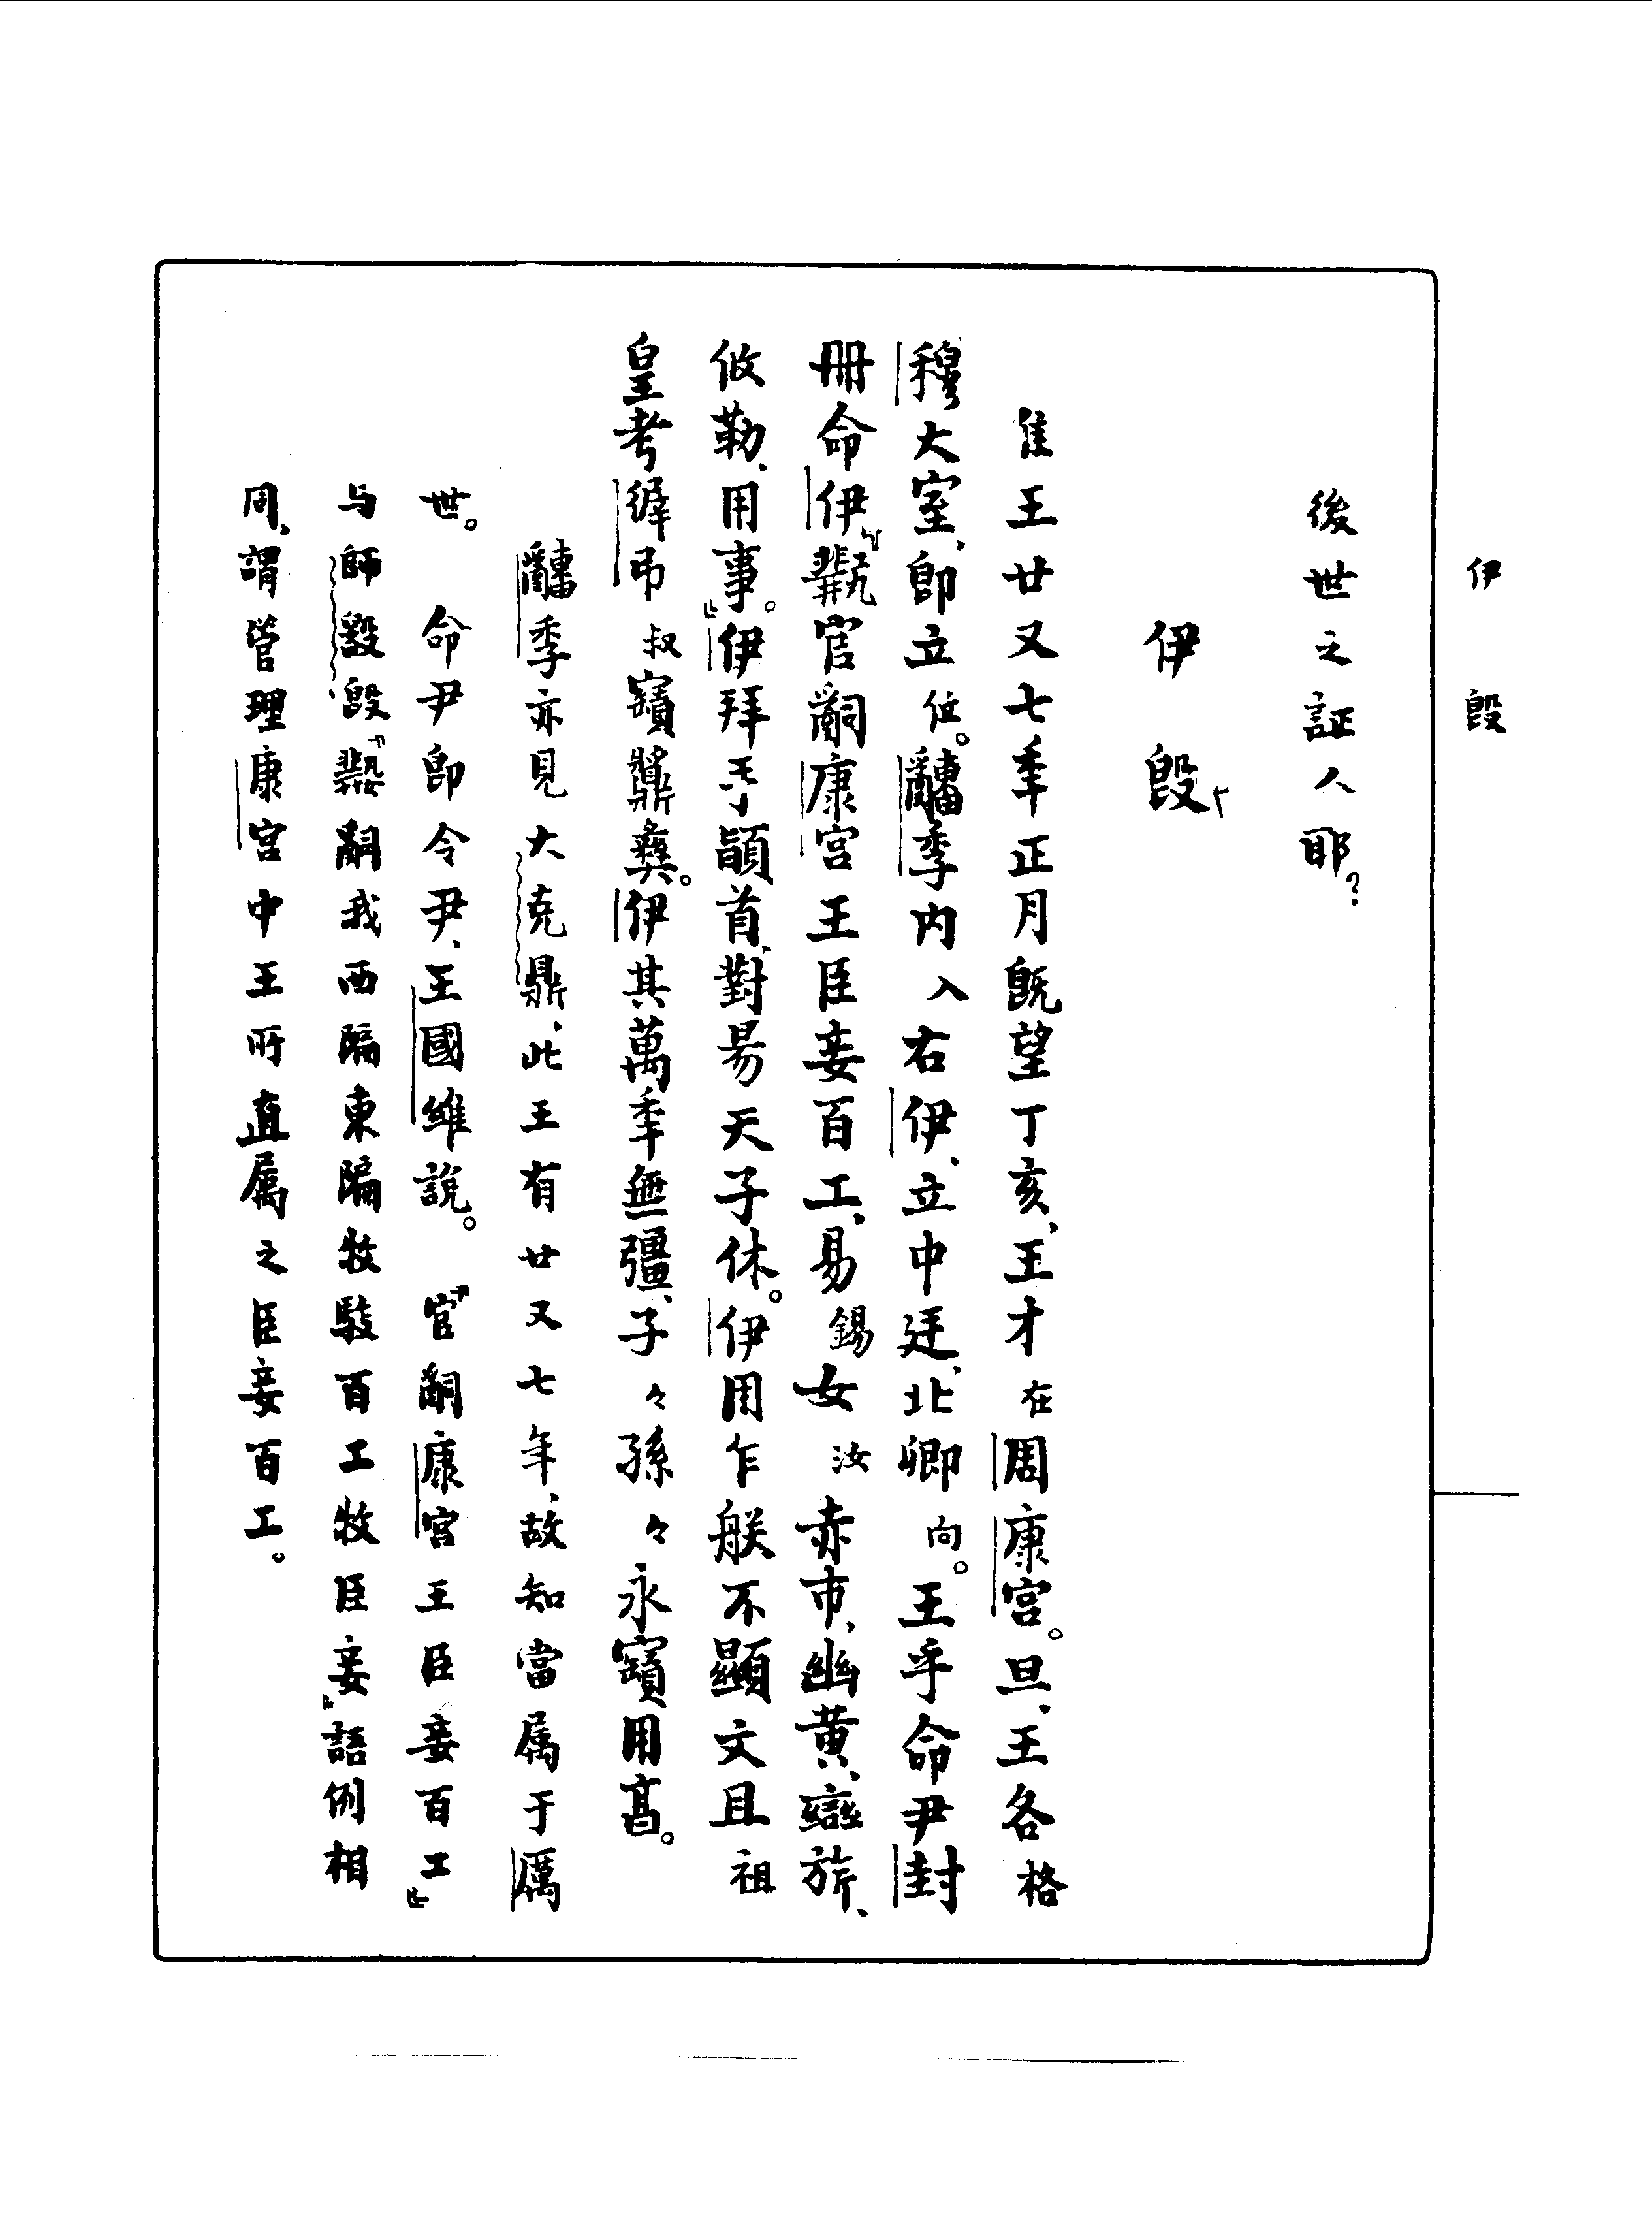 伊𣪘
後世之証人耶？
伊𣪘
隹王廿又七年正月既望丁亥、王才在周康宮。旦、王各格
穆大室、即立位。𤔲季内入右伊、立中廷、北卿向。王乎命尹封
冊命伊「官𤔲康宮王臣妾百工、易錫女汝赤巿、幽黄、䜌旂、
攸勒、用事。」伊拜手䭫首、對昜天子休。伊用乍朕不顯文且祖
皇考㣇弔叔寶䵼彝。伊其萬年無彊、子々孫々永寶用亯。
季亦見大克鼎、此王有廿又七年、故知當属于厲
世。命尹即令尹、王國維説。「官𤔲康宮王臣妾百工」
与師𣪘𣪘「𤔲我西隔東隔牧駿百工牧臣妾」語例相
同、謂管理康宮中王所直属之臣妾百工。